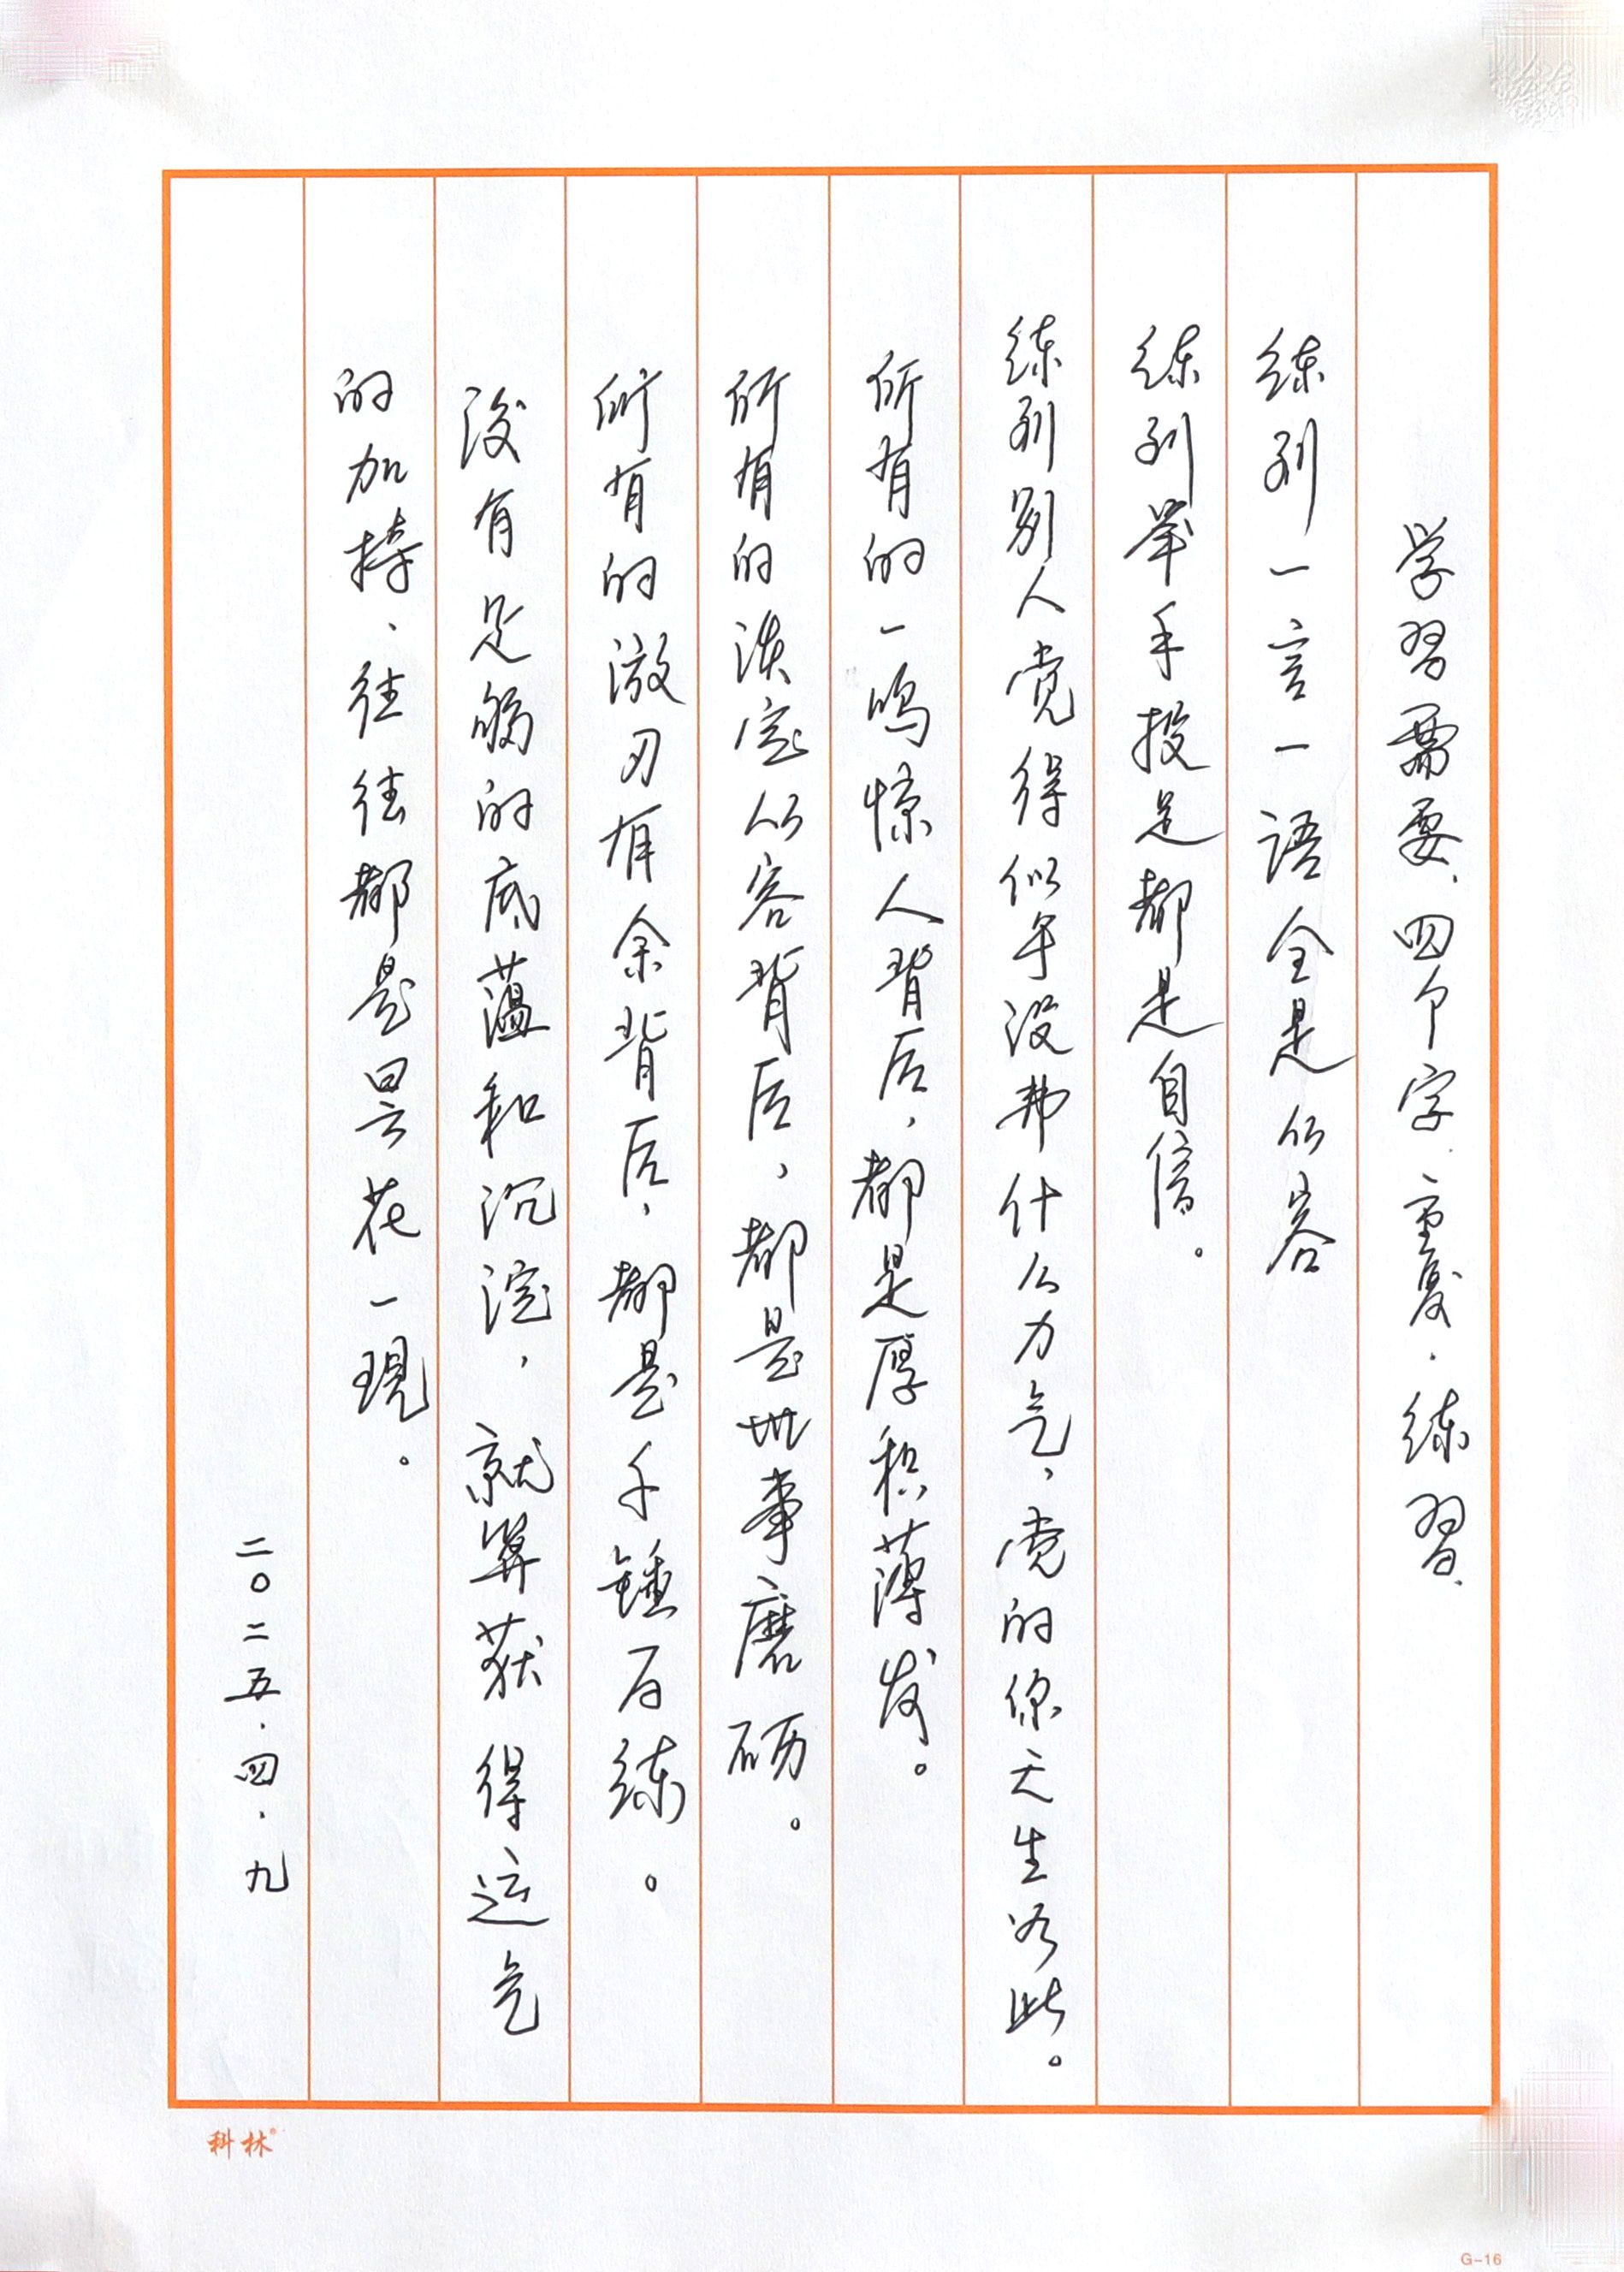 学习需要、四个字.重复.练习.
练到一言一语全是从容
练到举手投足都是自信。
练到别人觉得似乎没费什么力气、觉的你天生如此。
所有的一鸣惊人背后,都是厚积薄发。
所有的淡定从容背后,都是世事磨砺。
所有的游刃有余背后,都是千锤百练。
没有足够的底蕴和沉淀,就算获得运气
的加持、往往都是昙花一现。
二〇二五.四.九
科林®
G-16